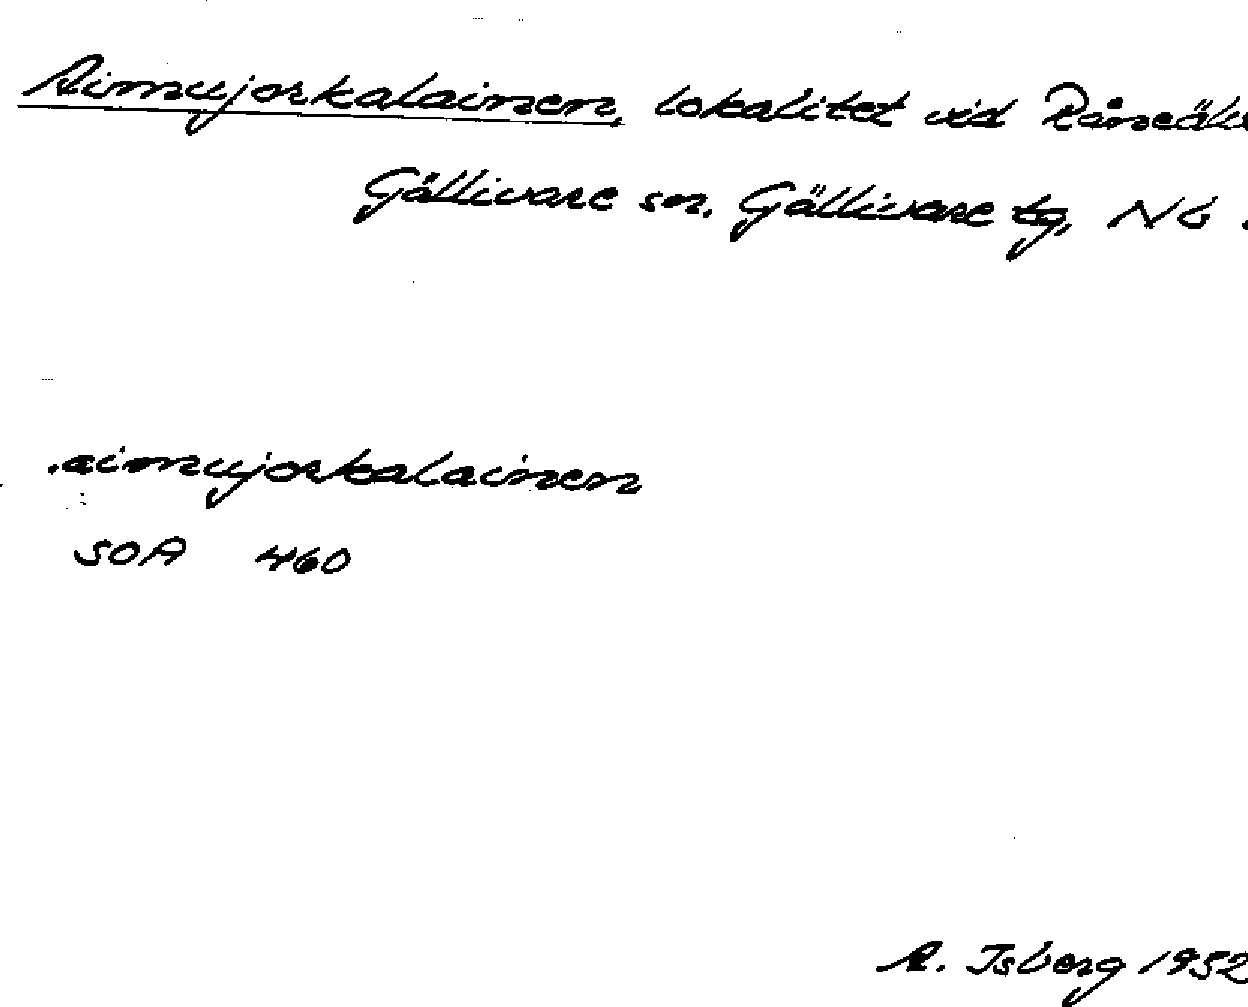 Aimujorkalainen, lokalitet vid Råneälv
Gällivare sn. Gällivare tg, NB.
.aimujorkalainen
SOA 460
A. Isberg 1952